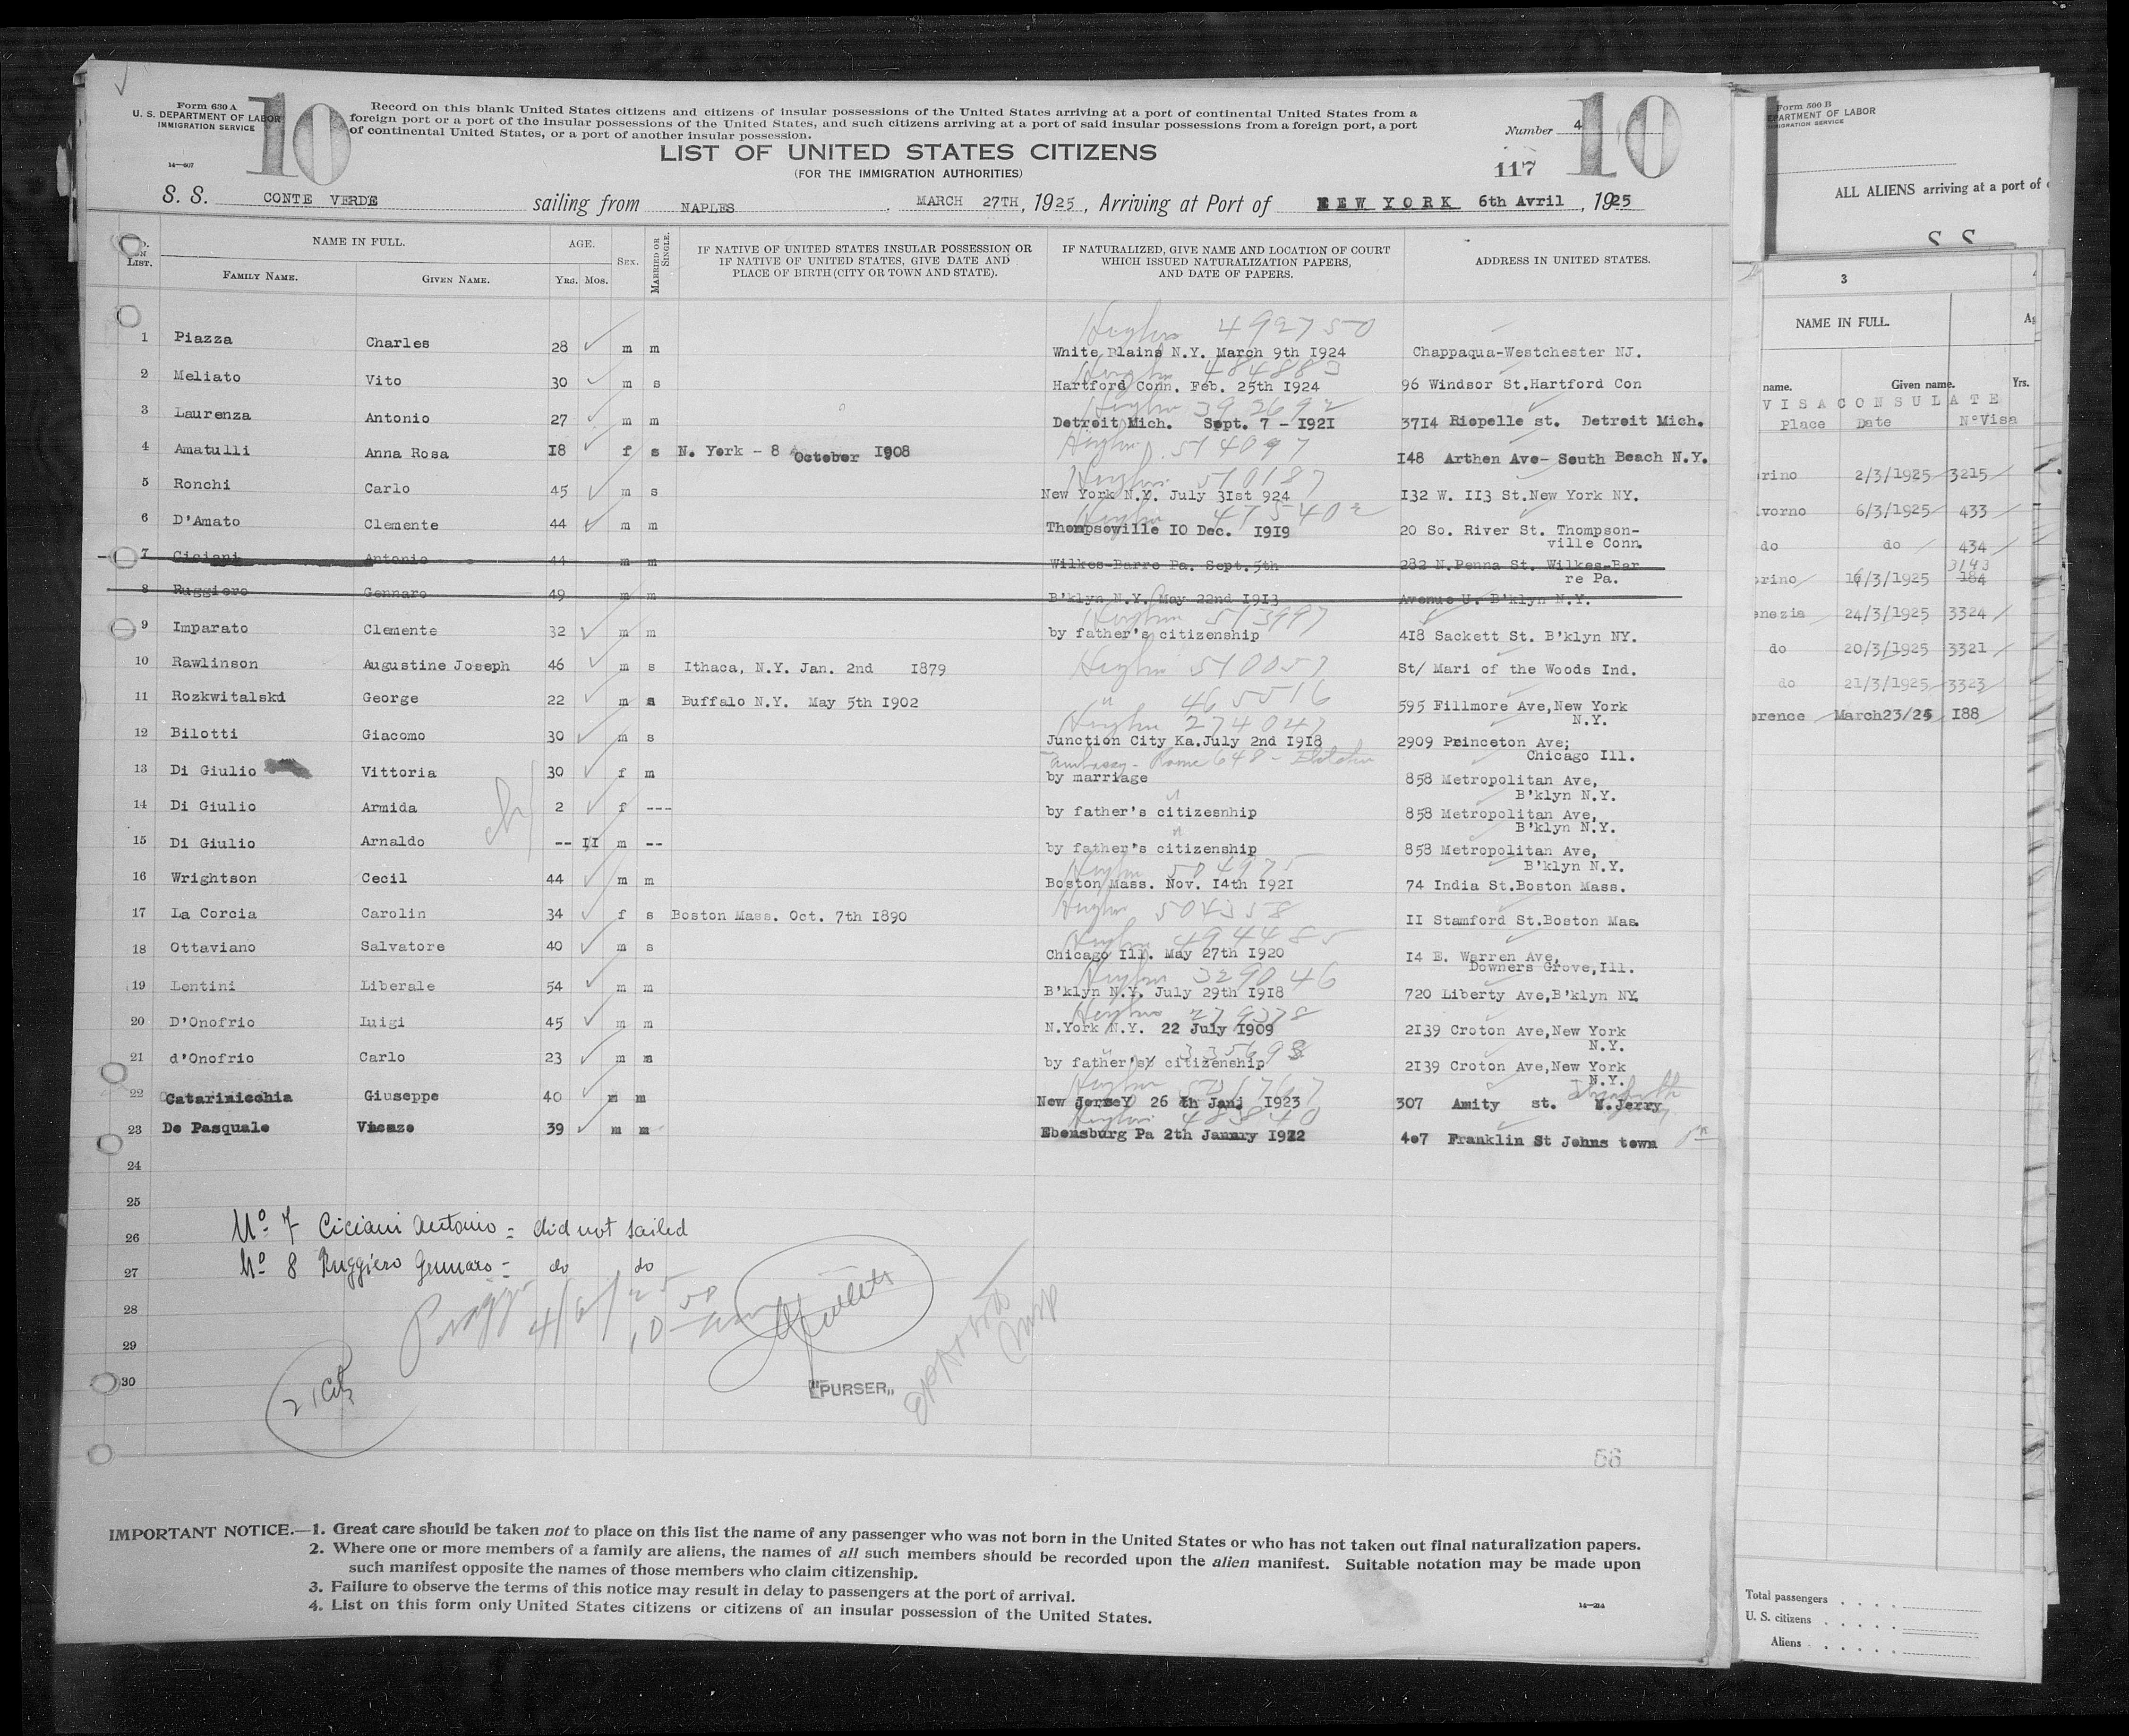 Form 630 A
U. S. DEPARTMENT OF LABOR
IMMIGRATION SERVICE
14—607
10
Record on this blank United States citizens and citizens of insular possessions of the United States arriving at a port of continental United States from a
foreign port or a port of the insular possessions of the United States, and such citizens arriving at a port of said insular possessions from a foreign port, a port
of continental United States, or a port of another insular possession.
Number 4
10
LIST OF UNITED STATES CITIZENS
(FOR THE IMMIGRATION AUTHORITIES)
117
S. S. CONTE VERDE sailing from NAPLES MARCH 27TH, 1925, Arriving at Port of NEW YORK 6th Avril, 1925
No. ON LIST. NAME IN FULL. AGE. SEX. MARRIED OR SINGLE. IF NATIVE OF UNITED STATES INSULAR POSSESSION OR IF NATIVE OF UNITED STATES, GIVE DATE AND PLACE OF BIRTH (CITY OR TOWN AND STATE). IF NATURALIZED, GIVE NAME AND LOCATION OF COURT WHICH ISSUED NATURALIZATION PAPERS, AND DATE OF PAPERS. ADDRESS IN UNITED STATES.
FAMILY NAME. GIVEN NAME. YRS. MOS.
492750
1 Piazza Charles 28 m m White Plains N.Y. March 9th 1924 Chappaqua-Westchester NJ.
484883
2 Meliato Vito 30 m s Hartford Conn. Feb. 25th 1924 96 Windsor St.Hartford Con
392692
3 Laurenza Antonio 27 m m Detroit Mich. Sept. 7 - 1921 3714 Riopelle st. Detroit Mich.
514097
4 Amatulli Anna Rosa 18 f s N. York - 8 October 1908 148 Arthen Ave- South Beach N.Y.
510187
5 Ronchi Carlo 45 m s New York N.Y. July 31st 924 132 W. 113 St.New York NY.
475402
6 D'Amato Clemente 44 m m Thompsoville 10 Dec. 1919 20 So. River St. Thompson-
ville Conn.
7 Ciciani Antonio 44 m m Wilkes-Barre Pa. Sept. 5th 282 N.Penna St. Wilkes-Bar
re Pa.
8 Ruggiero Gennaro 49 m m B'klyn N.Y. May 22nd 1913 Avenue U. B'klyn N.Y.
513997
9 Imparato Clemente 32 m m by father's citizenship 418 Sackett St. B'klyn NY.
10 Rawlinson Augustine Joseph 46 m s Ithaca, N.Y. Jan. 2nd 1879 510057 St/ Mari of the Woods Ind.
11 Rozkwitalski George 22 m s Buffalo N.Y. May 5th 1902 " 465516 595 Fillmore Ave,New York
N.Y.
274047
12 Bilotti Giacomo 30 m s Junction City Ka.July 2nd 1918 2909 Princeton Ave;
Chicago Ill.
Embassy - Rome 648 -
13 Di Giulio Vittoria 30 f m by marriage 858 Metropolitan Ave,
B'klyn N.Y.
14 Di Giulio Armida 2 f --- by father's citizesnhip 858 Metropolitan Ave,
B'klyn N.Y.
15 Di Giulio Arnaldo -- II m -- by father's citizenship 858 Metropolitan Ave,
B'klyn N.Y.
504975
16 Wrightson Cecil 44 m m Boston Mass. Nov. 14th 1921 74 India St.Boston Mass.
17 La Corcia Carolin 34 f s Boston Mass. Oct. 7th 1890 504358 II Stamford St.Boston Mas.
494485
18 Ottaviano Salvatore 40 m s Chicago Ill. May 27th 1920 14 E. Warren Ave,
Downers Grove,Ill.
329046
19 Lentini Liberale 54 m m B'klyn N.Y. July 29th 1918 720 Liberty Ave,B'klyn NY.
279378
20 D'Onofrio Luigi 45 m m N.York N.Y. 22 July 1909 2139 Croton Ave,New York
N.Y.
335698
21 d'Onofrio Carlo 23 m m by father's citizenship 2139 Croton Ave,New York
N.Y.
22 Catarinicchia Giuseppe 40 m m New Jersey 26 th Janj 1923 307 Amity st. N.Jerry
483840
23 De Pasquale Vicnzo 39 m m Ebensburg Pa 2th January 1922 407 Franklin St Johns town
24
25
26 No 7 Ciciani Antonio = did not sailed
27 No 8 Ruggiero Gennaro = do do
4/6/25
28
29
30
"PURSER"
56
IMPORTANT NOTICE.—1. Great care should be taken not to place on this list the name of any passenger who was not born in the United States or who has not taken out final naturalization papers.
2. Where one or more members of a family are aliens, the names of all such members should be recorded upon the alien manifest. Suitable notation may be made upon
such manifest opposite the names of those members who claim citizenship.
3. Failure to observe the terms of this notice may result in delay to passengers at the port of arrival.
4. List on this form only United States citizens or citizens of an insular possession of the United States.
14—214
Form 500 B
EPARTMENT OF LABOR
MIGRATION SERVICE
ALL ALIENS arriving at a port of
S S
3
NAME IN FULL.
name. Given name. Yrs.
VISA CONSULATE
Place Date N°Visa
orino 2/3/1925 3215
ivorno 6/3/1925 433
do do 434
3143
orino 16/3/1925 184
enezia 24/3/1925 3324
do 20/3/1925 3321
do 21/3/1925 3323
orence March23/25 188
Total passengers
U. S. citizens
Aliens